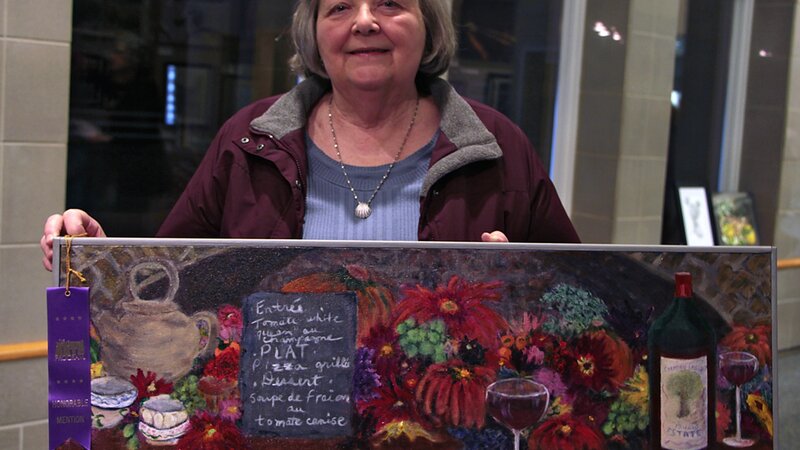 Entrée:
Tomate white
au
champagne
PLAT:
Pizza grillé
Dessert:
soupe de Frais
au
tomate cerise
HONORABLE
MENTION
ESTATE